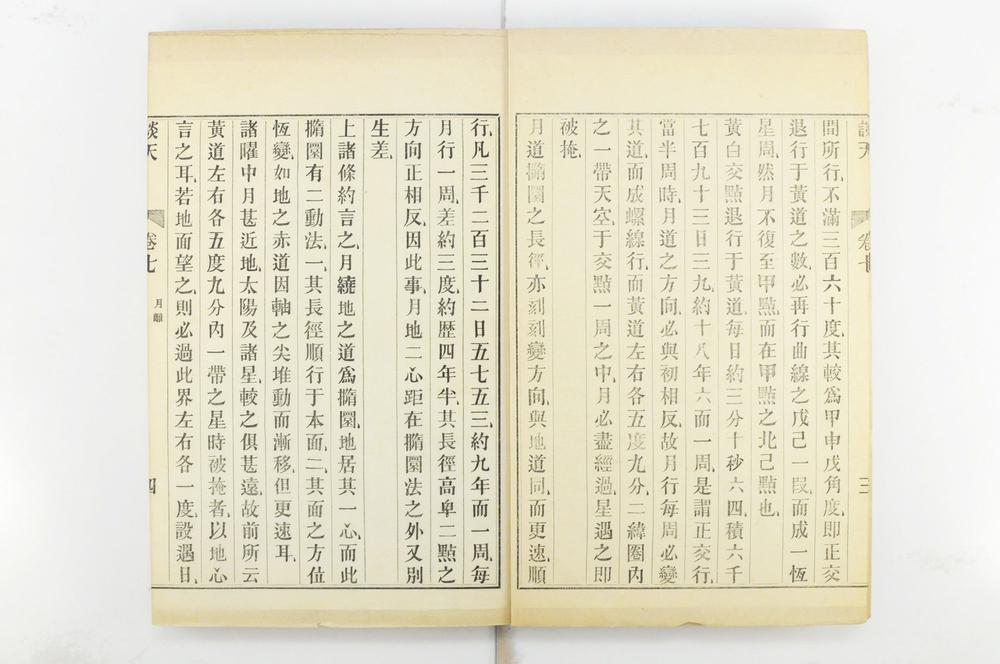 談天
卷七
三
間所行不滿三百六十度其較為甲申戊角度即正交
退行于黃道之數必再行曲線之戊己一段而成一恆
星周然月不復至甲點而在甲點之北己點也
黃白交點退行于黃道每日約三分十秒六四積六千
七百九十三日三九約十八年六而一周是謂正交行
當半周時月道之方向必與初相反故月行每周必變
其道而成螺線行而黃道左右各五度九分二緯圈內
之一帶天空于交點一周之中月必盡經過星遇之即
被掩
月道撱圜之長徑亦刻刻變方向與地道同而更速順
行凡三千二百三十二日五七五三約九年而一周每
月行一周差約三度約歷四年半其長徑高卑二點之
方向正相反因此事月地二心距在撱圜法之外又別
生差
上諸條約言之月繞地之道為撱圜地居其一心而此
撱圜有二動法一其長徑順行于本面二其面之方位
恆變如地之赤道因軸之尖堆動而漸移但更速耳
諸曜中月甚近地太陽及諸星較之俱甚遠故前所云
黃道左右各五度九分內一帶之星時被掩者以地心
言之耳若地面望之則必過此界左右各一度設遇日
談天
卷七
月離
四